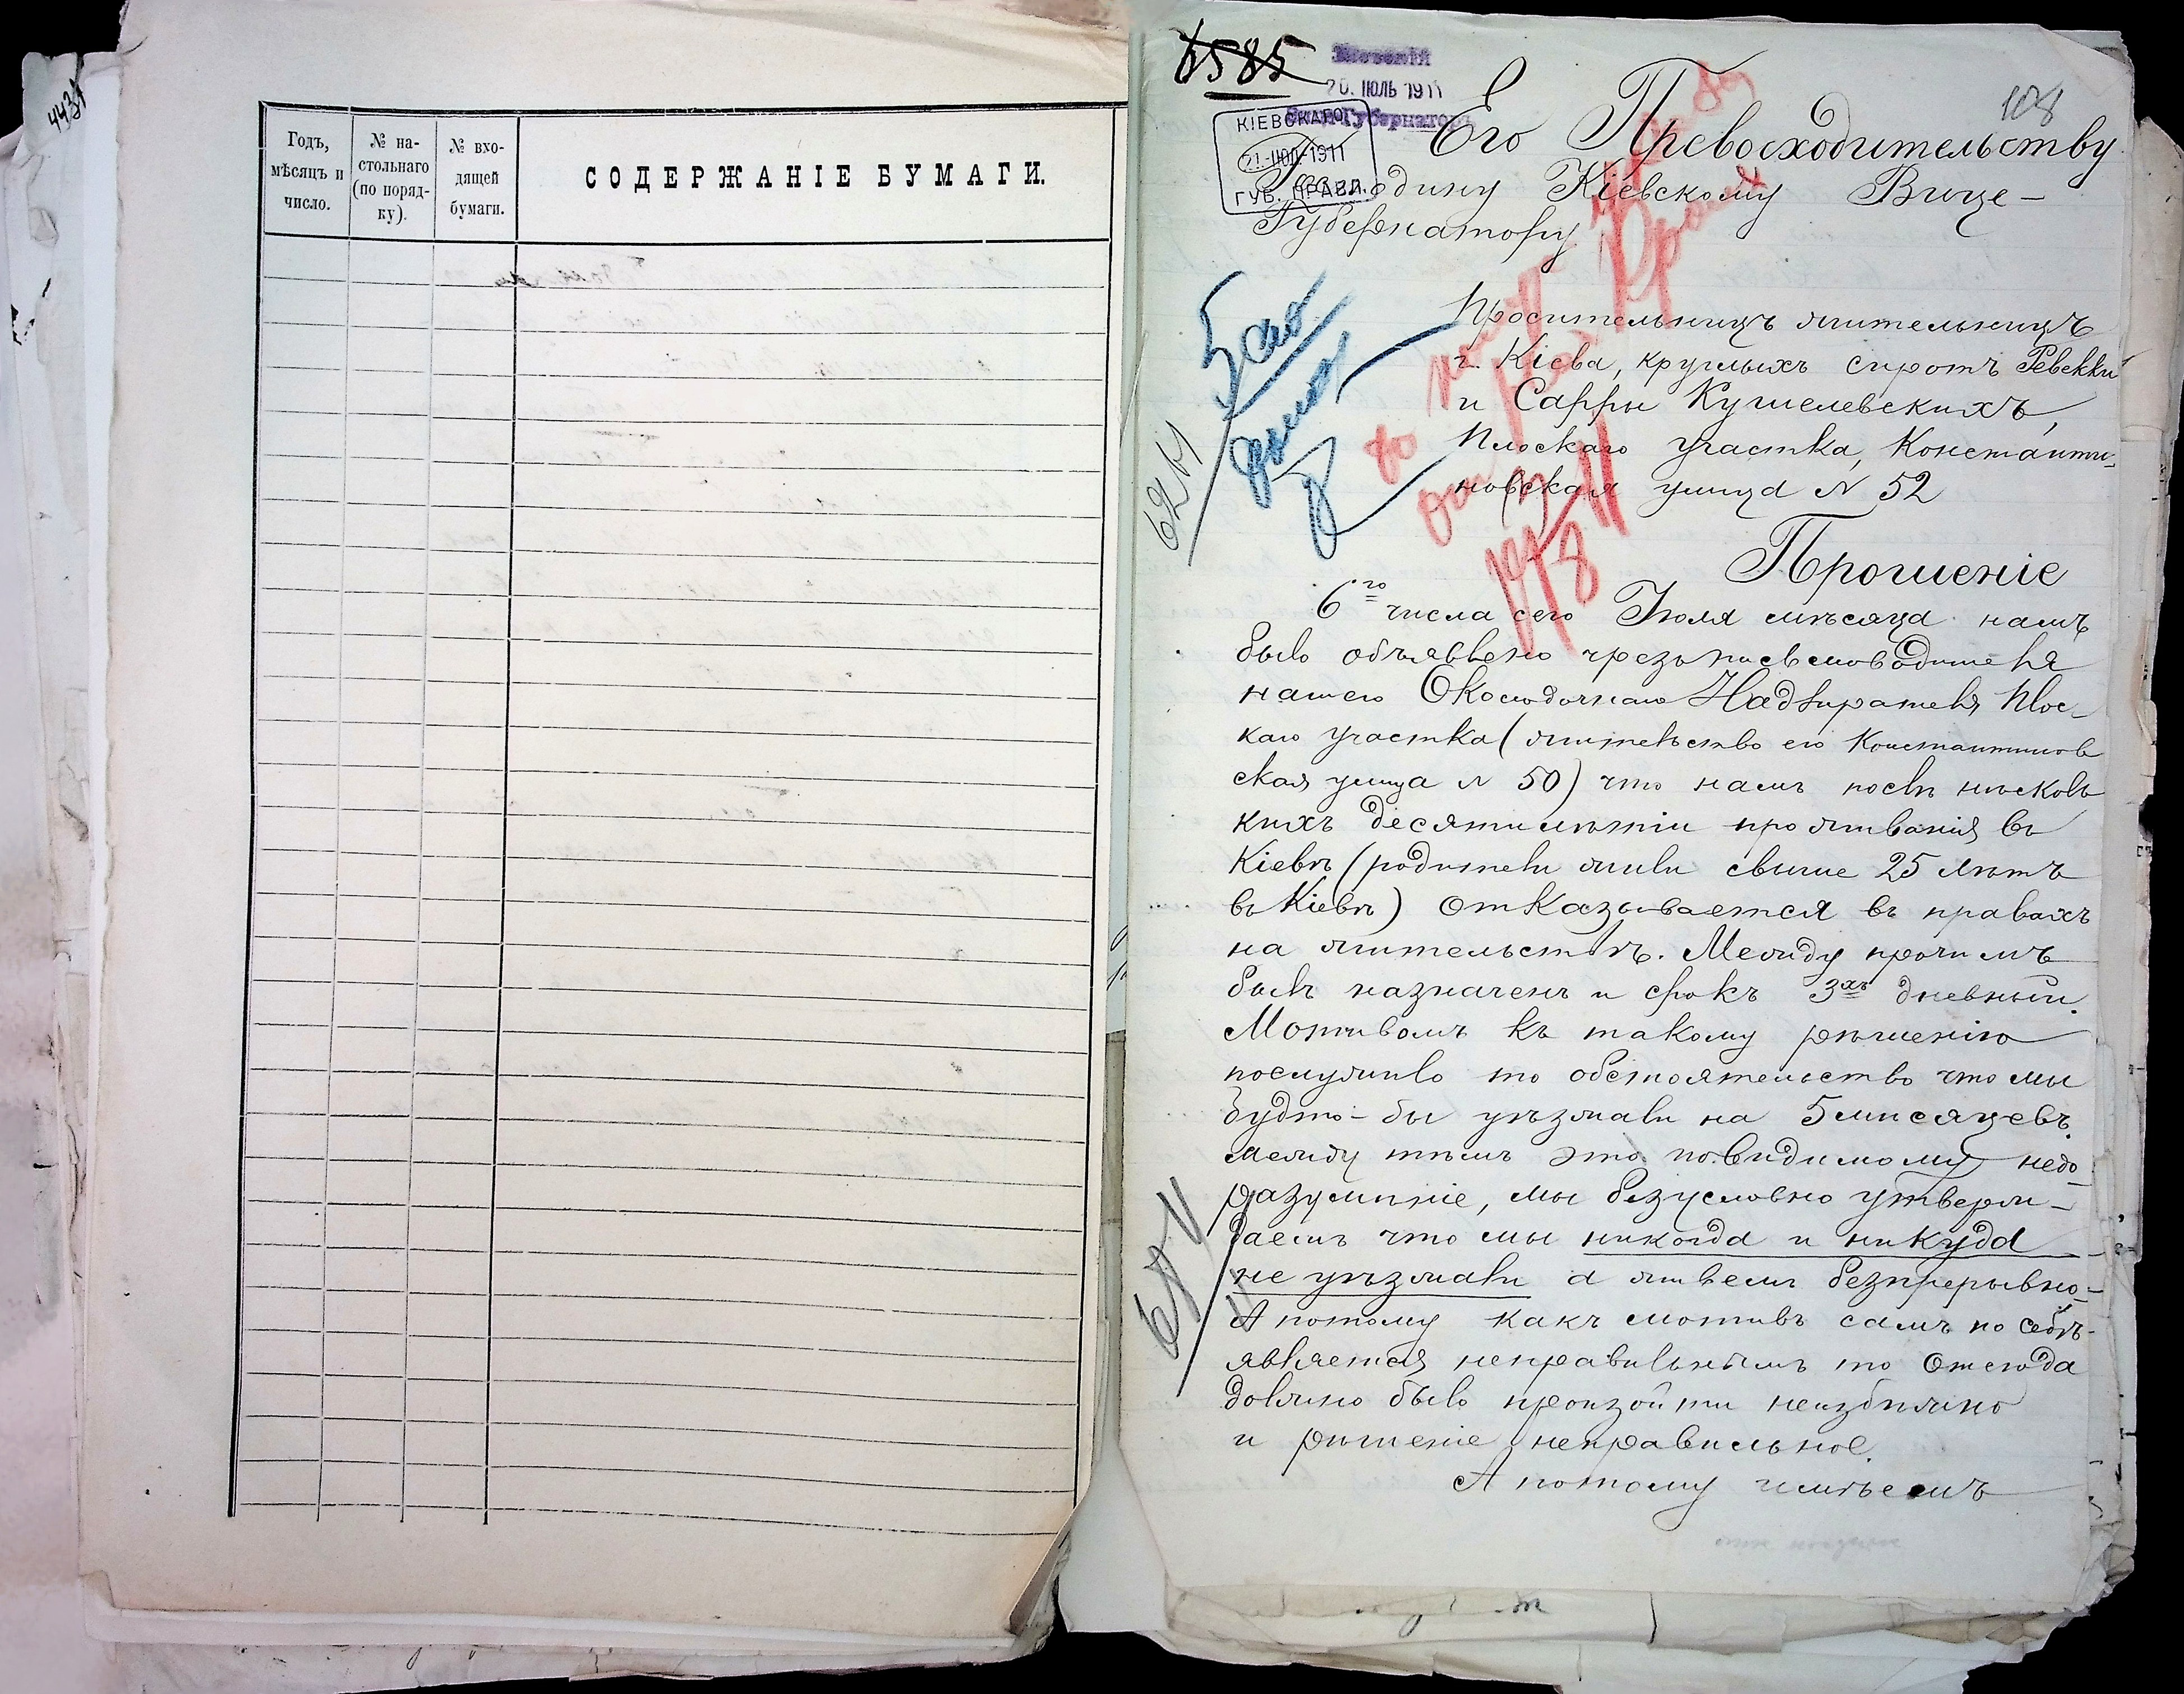 4437
Годъ,
мѣсяцъ и
число.
№ на-
стольнаго
(по поряд-
ку).
№ вхо-
дящей
бумаги.
СОДЕРЖАНІЕ БУМАГИ.
6585
20. ІЮЛЬ 1911
Губернаторъ
КІЕВСКАГО
21-ІЮЛ-1911
ГУБ. ПРАВЛ.
108
Его Превосходительству
Господину Кіевскому Вице-
Губернатору
Просительницъ жительницъ
г. Кіева, круглыхъ сиротъ Ревекки
и Сарры Кушелевскихъ,
Плоскаго участка, Константи-
новская улица N 52
Прошеніе
6го числа сего Іюля мѣсяца намъ
было объявлено чрезъ письмоводителя
нашего Околодочнаго Надзирателя Плос-
каго участка (жительство его Константинов
ская улица N 50) что намъ послѣ нѣсколь
кихъ десятилѣтіи проживанія въ
Кіевѣ (родители жили свыше 25 лѣтъ
въ Кіевѣ) отказывается въ правахъ
на жительствѣ. Между прочимъ
былъ назначенъ и срокъ 3хъ дневный.
Мотивомъ къ такому рѣшенію
послужило то обстоятельство что мы
будто-бы уѣзжали на 5 мисяцевъ.
между тѣмъ это по видимому недо-
разумѣніе, мы безусловно утверж-
даемъ что мы никогда и никуда
не уѣзжали а живемъ безпрерывно-
А потому какъ мотивъ самъ по себѣ-
является неправильнымъ то отсюда
должно было произойти неизбѣжно
и рѣшеніе неправильное.
А потому имѣемъ